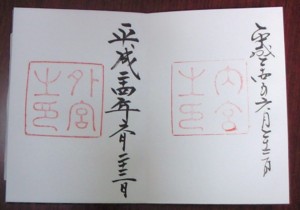 平成二十四年六月二十三日
内宮之印
平成二十四年六月二十三日
外宮之印